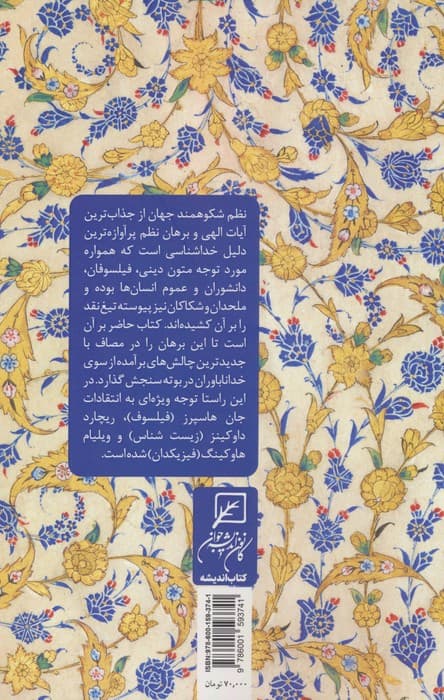 نظم شکوهمند جهان از جذاب‌ترین
آیات الهی و برهان نظم پرآوازه‌ترین
دلیل خداشناسی است که همواره
مورد توجه متون دینی، فیلسوفان،
دانشوران و عموم انسان‌ها بوده و
ملحدان و شکاکان نیز پیوسته تیغ نقد
را بر آن کشیده‌اند. کتاب حاضر بر آن
است تا این برهان را در مصاف با
جدیدترین چالش‌های برآمده از سوی
خداناباوران در بوته سنجش گذارد. در
این راستا توجه ویژه‌ای به انتقادات
جان هاسپرز (فیلسوف)، ریچارد
داوکینز (زیست شناس) و ویلیام
هاوکینگ (فیزیکدان) شده است.
کانون اندیشه جوان
کتاب اندیشه
ISBN: 978-600-159-374-1
9 786001 593741
۷۰,۰۰۰ تومان